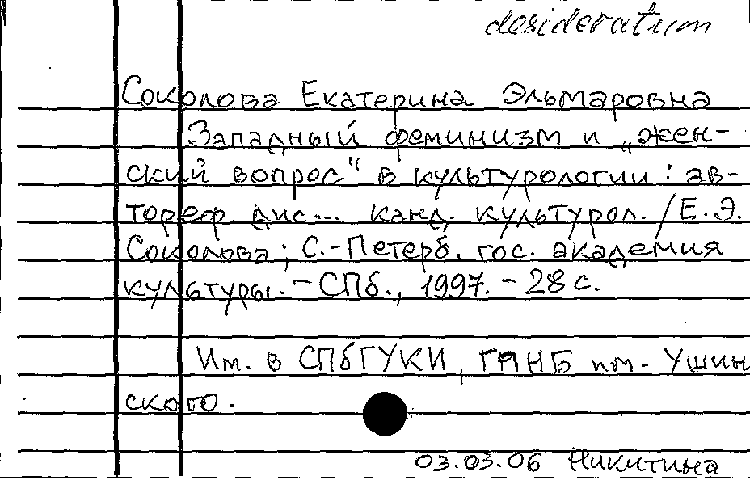 desideratum
Соколова Екатерина Эльмаровна
Западный феминизм и „жен-
ский вопрос“ в культурологии : ав-
тореф дис... канд. культурол. / Е.Э.
Соколова ; С.-Петерб. гос. академия
культуры. - СПб., 1997. - 28 с.
Им. в СПбГУКИ, ГПНБ им. Ушин
ского.
03.03.06 Никитина